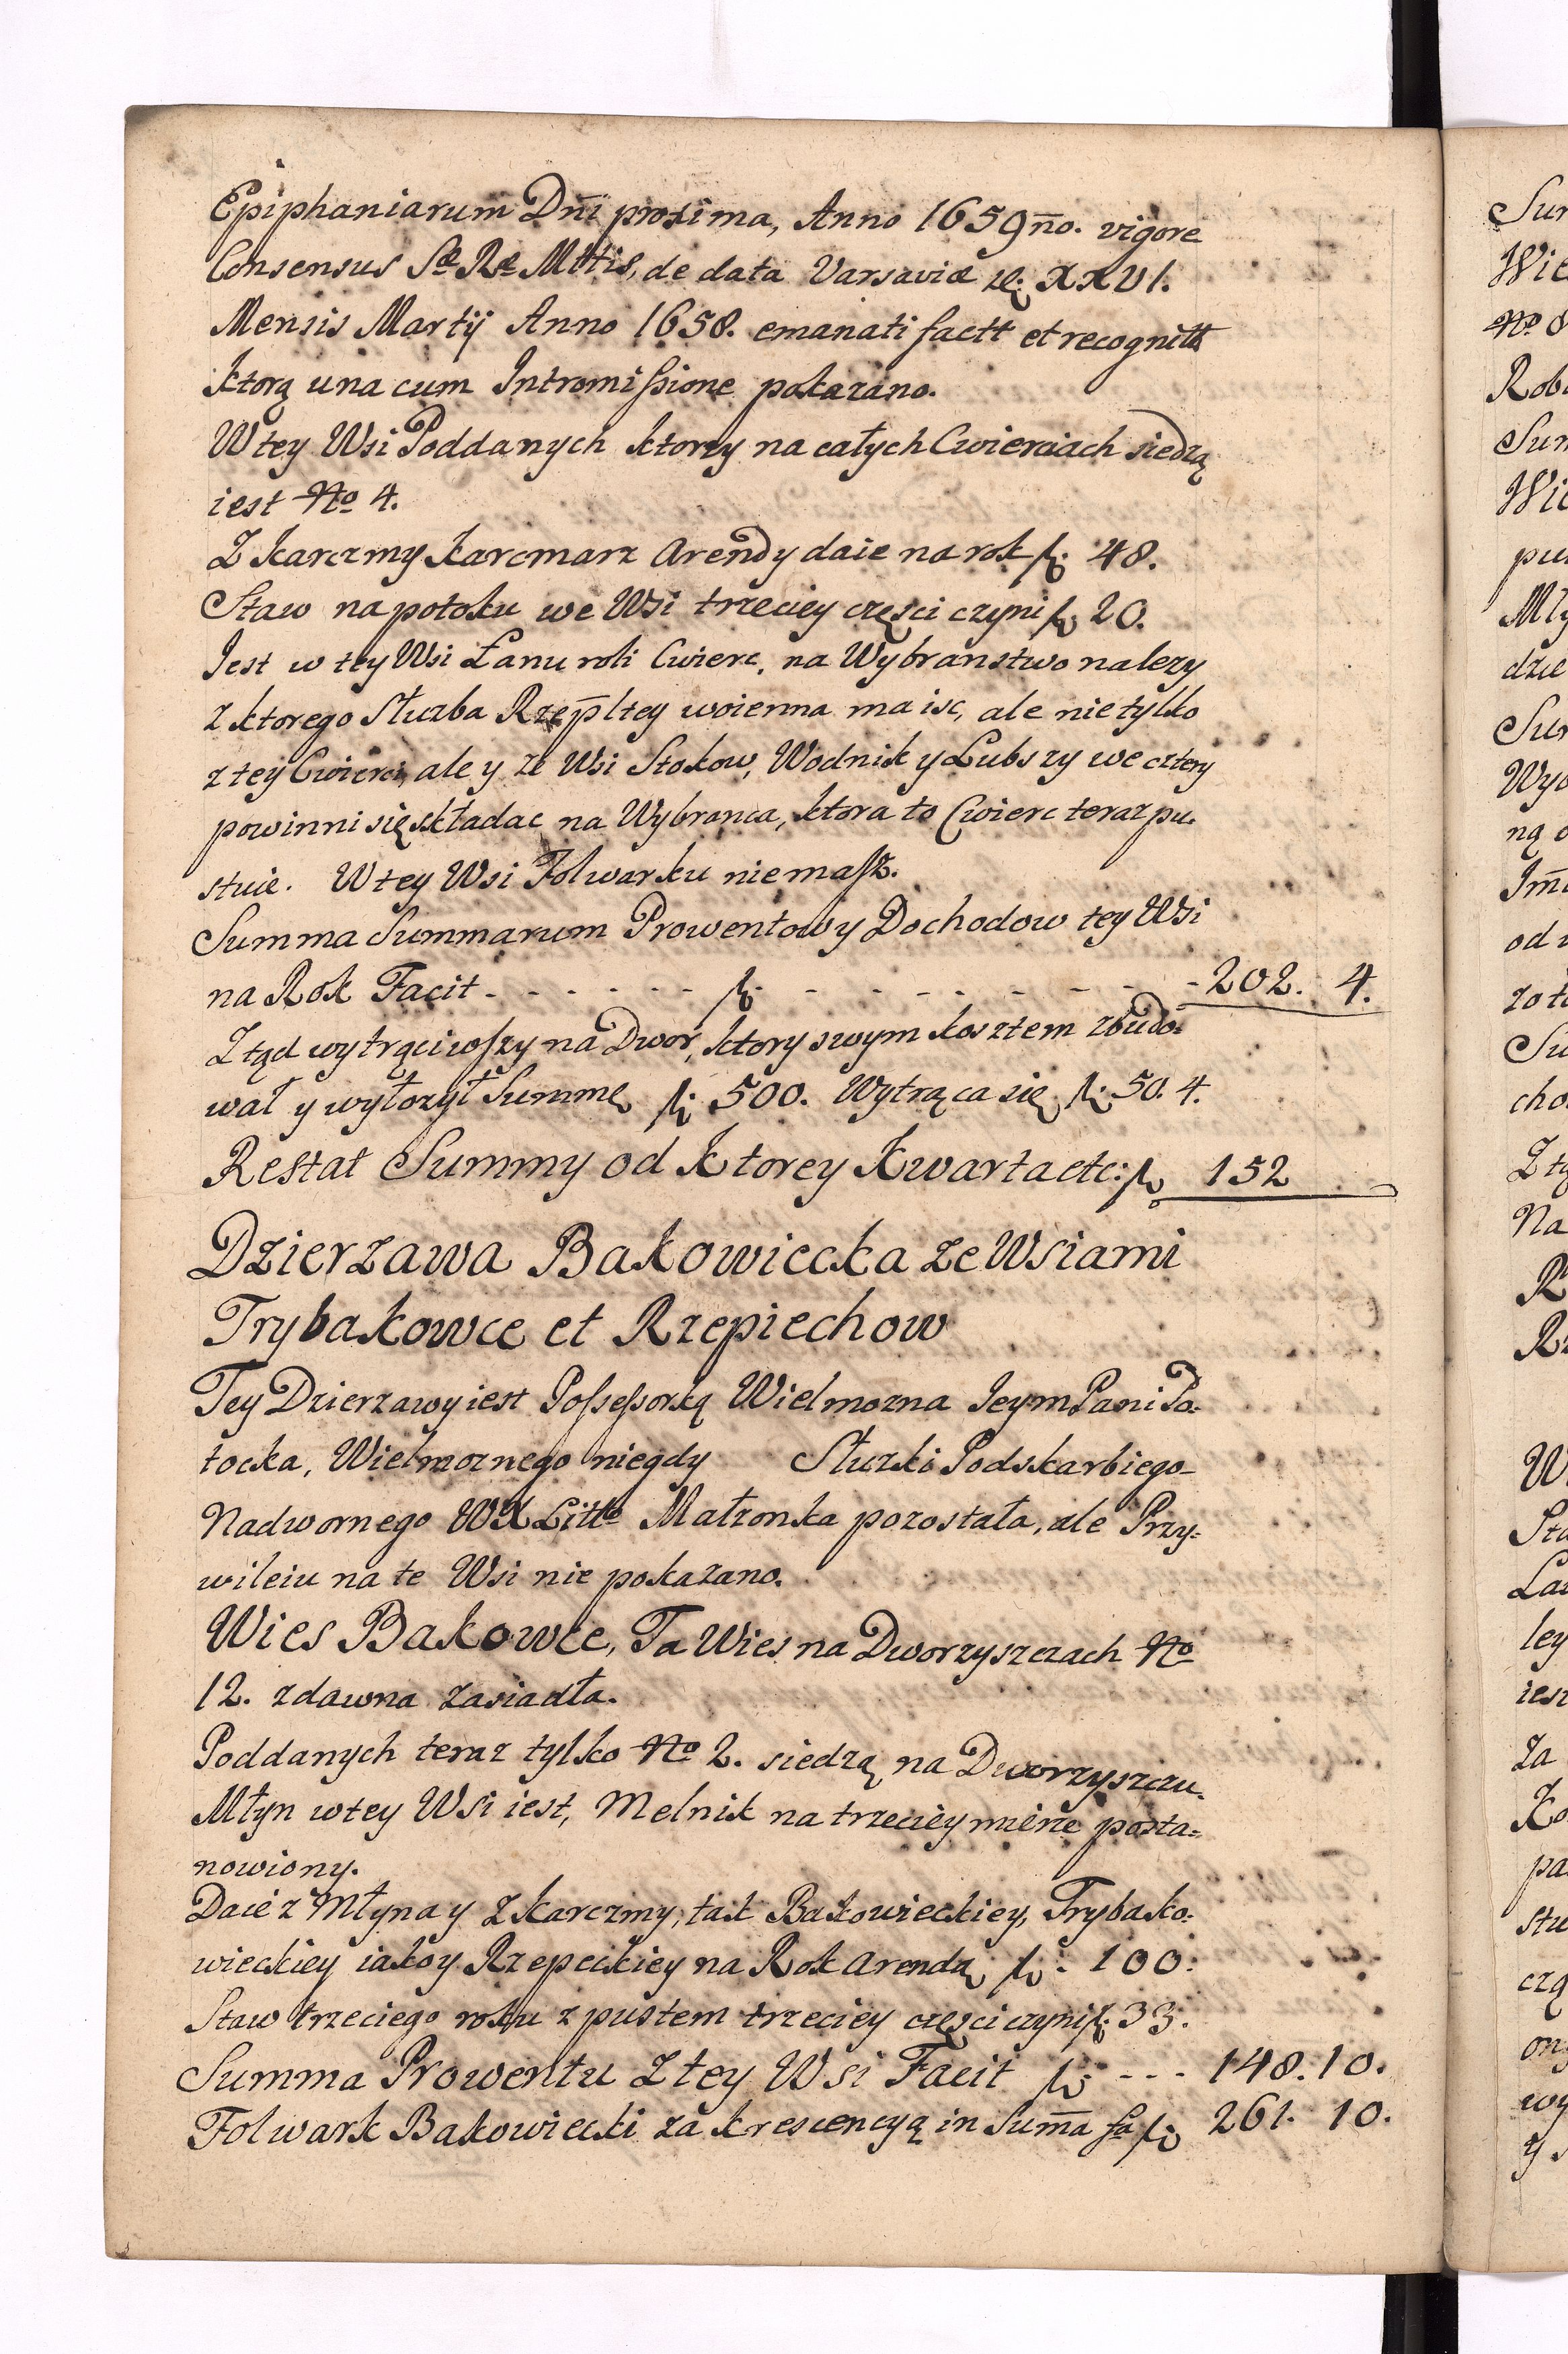 Epiphaniarum Dni proxima, Anno 1659no. vigore
Consensus Sæ Ræ Mttis, de data Varsaviæ XXVI.
Mensis Martij Anno 1658. emanati factt et recognitt
ktorą una cum Intromissione pokazano.
W tey Wsi Poddanych ktorzy na całych Cwierciach siedzą
iest No 4.
Z karczmy karcmarz Arendy daie na rok fl: 48.
Staw na potoku we Wsi trzeciey częsci czyni fl: 20.
Jest w tey Wsi Łanu roli Cwierc, na Wybranstwo nalezy
z ktorego Słuzba Rzepltey woienna ma isc, ale nie tylko
z tey Cwierci, ale y ze Wsi Stokow, Wodnik y Lubszy we cztery
powinni się składac na Wybranca, ktora to Cwierc teraz pu-
stuie. W tey Wsi Folwarku niemasz.
Summa Summarum Prowentow y Dochodow tey Wsi
na Rok Facit - - - - - - fl: - - - - - - - - - 202. 4.
Ztąd wytrąciwszy na Dwor, ktory swym kosztem zbudo-
wał y wyłozył Summę fl: 500. Wytrąca się fl: 50. 4.
Restat Summy od ktorey Kwarta etc: fl: 152
Dzierzawa Bakowiecka ze Wsiami
Trybakowce et Rzepiechow
Tey Dzierzawy iest Possessorką Wielmozna Jeym Pani Po-
tocka, Wielmoznego niegdy Słuzki Podskarbiego
Nadwornego WX Litto Małzonka pozostała, ale Przy-
wileiu na te Wsi nie pokazano.
Wies Bakowce, Ta Wies na Dworzyszczach No
12. zdawna zasiadła.
Poddanych teraz tylko No 2. siedzą na Dworzyszczu.
Młyn w tey Wsi iest, Melnik na trzeciey mierze posta-
nowiony.
Daie z Młyna y z karczmy, tak Bakowieckiey, Trybako-
wieckiey iako y Rzepeckiey na Rok Arendą fl: 100:
Staw trzeciego roku z pustem trzeciey częsci czyni fl: 33.
Summa Prowentu z tey Wsi Facit fl: - - - 148. 10.
Folwark Bakowiecki za krescencyą in Suma fa fl: 261. 10.